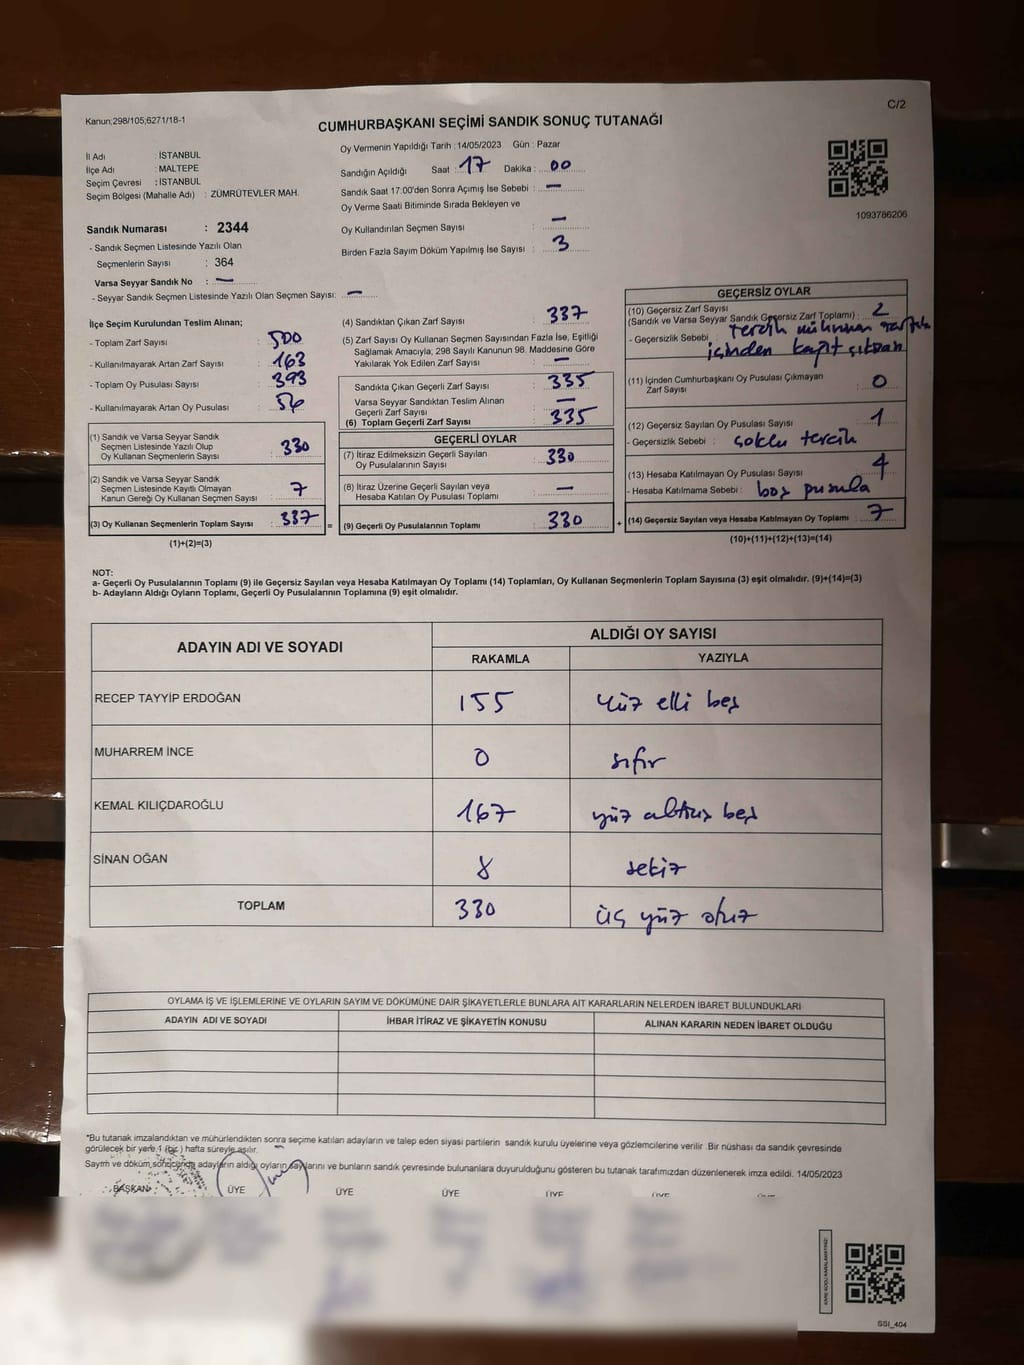 Kanun;298/105;6271/18-1
C/2
CUMHURBAŞKANI SEÇİMİ SANDIK SONUÇ TUTANAĞI
İl Adı : İSTANBUL
İlçe Adı : MALTEPE
Seçim Çevresi : İSTANBUL
Seçim Bölgesi (Mahalle Adı) : ZÜMRÜTEVLER MAH.
Sandık Numarası : 2344
- Sandık Seçmen Listesinde Yazılı Olan
Seçmenlerin Sayısı : 364
Varsa Seyyar Sandık No : —
- Seyyar Sandık Seçmen Listesinde Yazılı Olan Seçmen Sayısı: —
Oy Vermenin Yapıldığı Tarih : 14/05/2023 Gün : Pazar
Sandığın Açıldığı Saat : 17 Dakika : 00
Sandık Saat 17:00'den Sonra Açımış İse Sebebi : —
Oy Verme Saati Bitiminde Sırada Bekleyen ve
Oy Kullandırılan Seçmen Sayısı : —
Birden Fazla Sayım Döküm Yapılmış İse Sayısı : 3
1093786206
İlçe Seçim Kurulundan Teslim Alınan;
- Toplam Zarf Sayısı : 500
- Kullanılmayarak Artan Zarf Sayısı : 163
- Toplam Oy Pusulası Sayısı : 393
- Kullanılmayarak Artan Oy Pusulası : 56
(1) Sandık ve Varsa Seyyar Sandık
Seçmen Listesinde Yazılı Olup
Oy Kullanan Seçmenlerin Sayısı : 330
(2) Sandık ve Varsa Seyyar Sandık
Seçmen Listesinde Kayıtlı Olmayan
Kanun Gereği Oy Kullanan Seçmen Sayısı : 7
(3) Oy Kullanan Seçmenlerin Toplam Sayısı : 337 =
(1)+(2)=(3)
(4) Sandıktan Çıkan Zarf Sayısı : 337
(5) Zarf Sayısı Oy Kullanan Seçmen Sayısından Fazla İse, Eşitliği
Sağlamak Amacıyla; 298 Sayılı Kanunun 98. Maddesine Göre
Yakılarak Yok Edilen Zarf Sayısı : —
Sandıkta Çıkan Geçerli Zarf Sayısı : 335
Varsa Seyyar Sandıktan Teslim Alınan
Geçerli Zarf Sayısı : —
(6) Toplam Geçerli Zarf Sayısı : 335
GEÇERLİ OYLAR
(7) İtiraz Edilmeksizin Geçerli Sayılan
Oy Pusulalarının Sayısı : 330
(8) İtiraz Üzerine Geçerli Sayılan veya
Hesaba Katılan Oy Pusulası Toplamı : —
(9) Geçerli Oy Pusulalarının Toplamı : 330 +
GEÇERSİZ OYLAR
(10) Geçersiz Zarf Sayısı
(Sandık ve Varsa Seyyar Sandık Geçersiz Zarf Toplamı) : 2
- Geçersizlik Sebebi : tercih mührünün zarfta
içinden kağıt çıkan
(11) İçinden Cumhurbaşkanı Oy Pusulası Çıkmayan
Zarf Sayısı : 0
(12) Geçersiz Sayılan Oy Pusulası Sayısı : 1
- Geçersizlik Sebebi : çoklu tercih
(13) Hesaba Katılmayan Oy Pusulası Sayısı : 4
- Hesaba Katılmama Sebebi : boş pusula
(14) Geçersiz Sayılan veya Hesaba Katılmayan Oy Toplamı : 7
(10)+(11)+(12)+(13)=(14)
NOT:
a- Geçerli Oy Pusulalarının Toplamı (9) ile Geçersiz Sayılan veya Hesaba Katılmayan Oy Toplamı (14) Toplamları, Oy Kullanan Seçmenlerin Toplam Sayısına (3) eşit olmalıdır. (9)+(14)=(3)
b- Adayların Aldığı Oyların Toplamı, Geçerli Oy Pusulalarının Toplamına (9) eşit olmalıdır.
ADAYIN ADI VE SOYADI
ALDIĞI OY SAYISI
RAKAMLA YAZIYLA
RECEP TAYYİP ERDOĞAN 155 Yüz elli beş
MUHARREM İNCE 0 sıfır
KEMAL KILIÇDAROĞLU 167 yüz altmış beş
SİNAN OĞAN 8 sekiz
TOPLAM 330 üç yüz otuz
OYLAMA İŞ VE İŞLEMLERİNE VE OYLARIN SAYIM VE DÖKÜMÜNE DAİR ŞİKAYETLERLE BUNLARA AİT KARARLARIN NELERDEN İBARET BULUNDUKLARI
ADAYIN ADI VE SOYADI İHBAR İTİRAZ VE ŞİKAYETİN KONUSU ALINAN KARARIN NEDEN İBARET OLDUĞU
*Bu tutanak imzalandıktan ve mühürlendikten sonra seçime katılan adayların ve talep eden siyasi partilerin sandık kurulu üyelerine veya gözlemcilerine verilir. Bir nüshası da sandık çevresinde
görülecek bir yere 1 (bir) hafta süreyle asılır.
Sayım ve döküm sonucunda adayların aldığı oyların sayılarını ve bunların sandık çevresinde bulunanlara duyurulduğunu gösteren bu tutanak tarafımızdan düzenlenerek imza edildi. 14/05/2023
BAŞKAN ÜYE ÜYE ÜYE ÜYE ÜYE
SSI_404